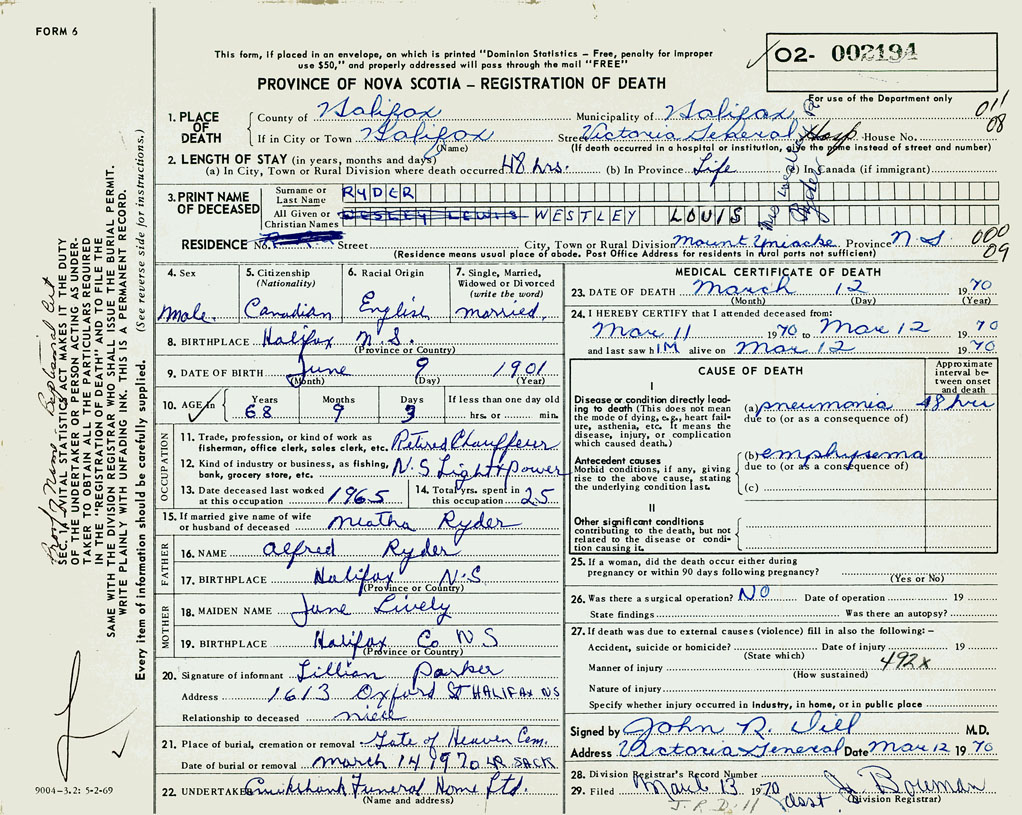 FORM 6
This form, if placed in an envelope, on which is printed "Dominion Statistics – Free, penalty for improper
use $50," and properly addressed will pass through the mail "FREE"
O2- 002194
PROVINCE OF NOVA SCOTIA – REGISTRATION OF DEATH
For use of the Department only
011
08
1. PLACE OF DEATH
County of Halifax Municipality of Halifax
If in City or Town Halifax Street Victoria General Hosp House No.
(Name) (If death occurred in a hospital or institution, give the name instead of street and number)
2. LENGTH OF STAY (in years, months and days)
(a) In City, Town or Rural Division where death occurred 48 hrs. (b) In Province Life (c) In Canada (if immigrant)
3. PRINT NAME OF DECEASED
Surname or Last Name RYDER
All Given or Christian Names WESLEY LEWIS WESTLEY LOUIS
Ryder
RESIDENCE No. Street City, Town or Rural Division Mount Uniacke Province N.S
(Residence means usual place of abode. Post Office Address for residents in rural parts not sufficient)
000
09
4. Sex
male.
5. Citizenship
(Nationality)
Canadian
6. Racial Origin
English
7. Single, Married,
Widowed or Divorced
(write the word)
married.
8. BIRTHPLACE Halifax N.S.
(Province or Country)
9. DATE OF BIRTH June 9 1901
(Month) (Day) (Year)
10. AGE in Years Months Days If less than one day old
68 9 3 hrs. or min.
OCCUPATION
11. Trade, profession, or kind of work as
fisherman, office clerk, sales clerk, etc. Retired Chauffeur
12. Kind of industry or business, as fishing,
bank, grocery store, etc. N.S. Light & Power
13. Date deceased last worked
at this occupation 1965
14. Total yrs. spent in
this occupation 25
15. If married give name of wife
or husband of deceased Meatha Ryder
FATHER
16. NAME Alfred Ryder
17. BIRTHPLACE Halifax N.S
(Province or Country)
MOTHER
18. MAIDEN NAME Jane Lively
19. BIRTHPLACE Halifax Co. N S
(Province or Country)
20. Signature of informant Lillian Parker
Address 1613 Oxford St HALIFAX NS
Relationship to deceased niece
21. Place of burial, cremation or removal Gate of Heaven Cem.
Date of burial or removal March 14 1970 LR. SACK
22. UNDERTAKER Cruikshank Funeral Home Ltd.
(Name and address)
MEDICAL CERTIFICATE OF DEATH
23. DATE OF DEATH March 12 1970
(Month) (Day) (Year)
24. I HEREBY CERTIFY that I attended deceased from:
Mar 11 1970 to Mar 12 1970
and last saw h IM alive on Mar 12 1970
CAUSE OF DEATH
Approximate
interval be-
tween onset
and death
I
Disease or condition directly lead-
ing to death (This does not mean
the mode of dying, e.g., heart fail-
ure, asthenia, etc. It means the
disease, injury, or complication
which caused death.)
(a) pneumonia 48 hrs
due to (or as a consequence of)
Antecedent causes
Morbid conditions, if any, giving
rise to the above cause, stating
the underlying condition last.
(b) emphysema
due to (or as a consequence of)
(c)
II
Other significant conditions
contributing to the death, but not
related to the disease or condi-
tion causing it.
25. If a woman, did the death occur either during
pregnancy or within 90 days following pregnancy?
(Yes or No)
26. Was there a surgical operation? NO Date of operation 19
State findings Was there an autopsy?
27. If death was due to external causes (violence) fill in also the following: –
Accident, suicide or homicide? Date of injury 19
(State which)
Manner of injury 492x
(How sustained)
Nature of injury
Specify whether injury occurred in industry, in home, or in public place
Signed by John R. Dill M.D.
Address Victoria General Date Mar 12 1970
28. Division Registrar's Record Number
29. Filed March 13 1970 asst J. Bowman
(Division Registrar)
SEC. 17 VITAL STATISTICS ACT MAKES IT THE DUTY
OF THE UNDERTAKER OR PERSON ACTING AS UNDER-
TAKER TO OBTAIN ALL THE PARTICULARS REQUIRED
IN THE "REGISTRATION OF DEATH" AND TO FILE THE
SAME WITH THE DIVISION REGISTRAR WHO SHALL ISSUE THE BURIAL PERMIT.
WRITE PLAINLY WITH UNFADING INK. THIS IS A PERMANENT RECORD.
Every item of information should be carefully supplied. (See reverse side for instructions.)
9004–3.2: 5-2-69